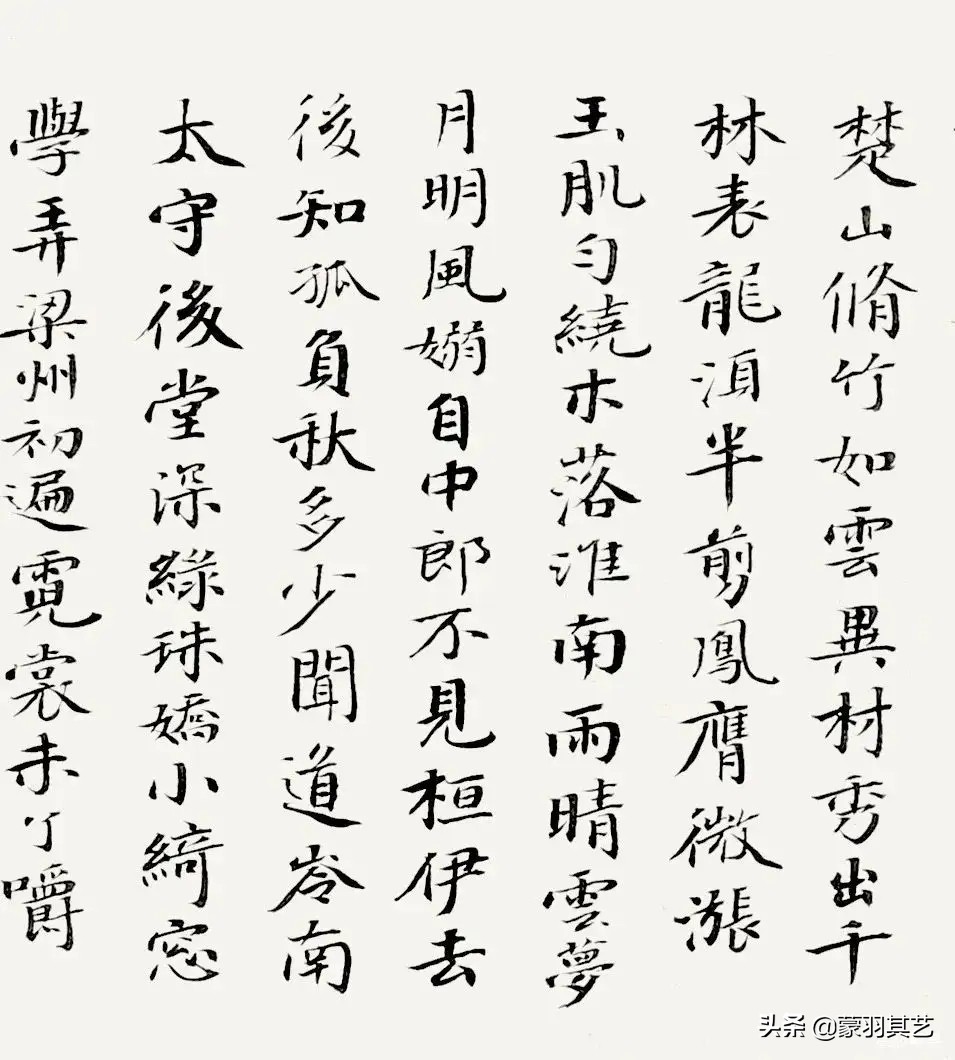 楚山脩竹如雲異材秀出千
林表龍湏半剪鳳膺微漲
玉肌匀繞木落淮南雨晴雲夢
月明風嫋自中郎不見桓伊去
後知孤負秋多少聞道岺南
太守後堂深綠珠嬌小綺窓
學弄梁州初遍霓裳未了嚼
头条 @蒙羽其艺